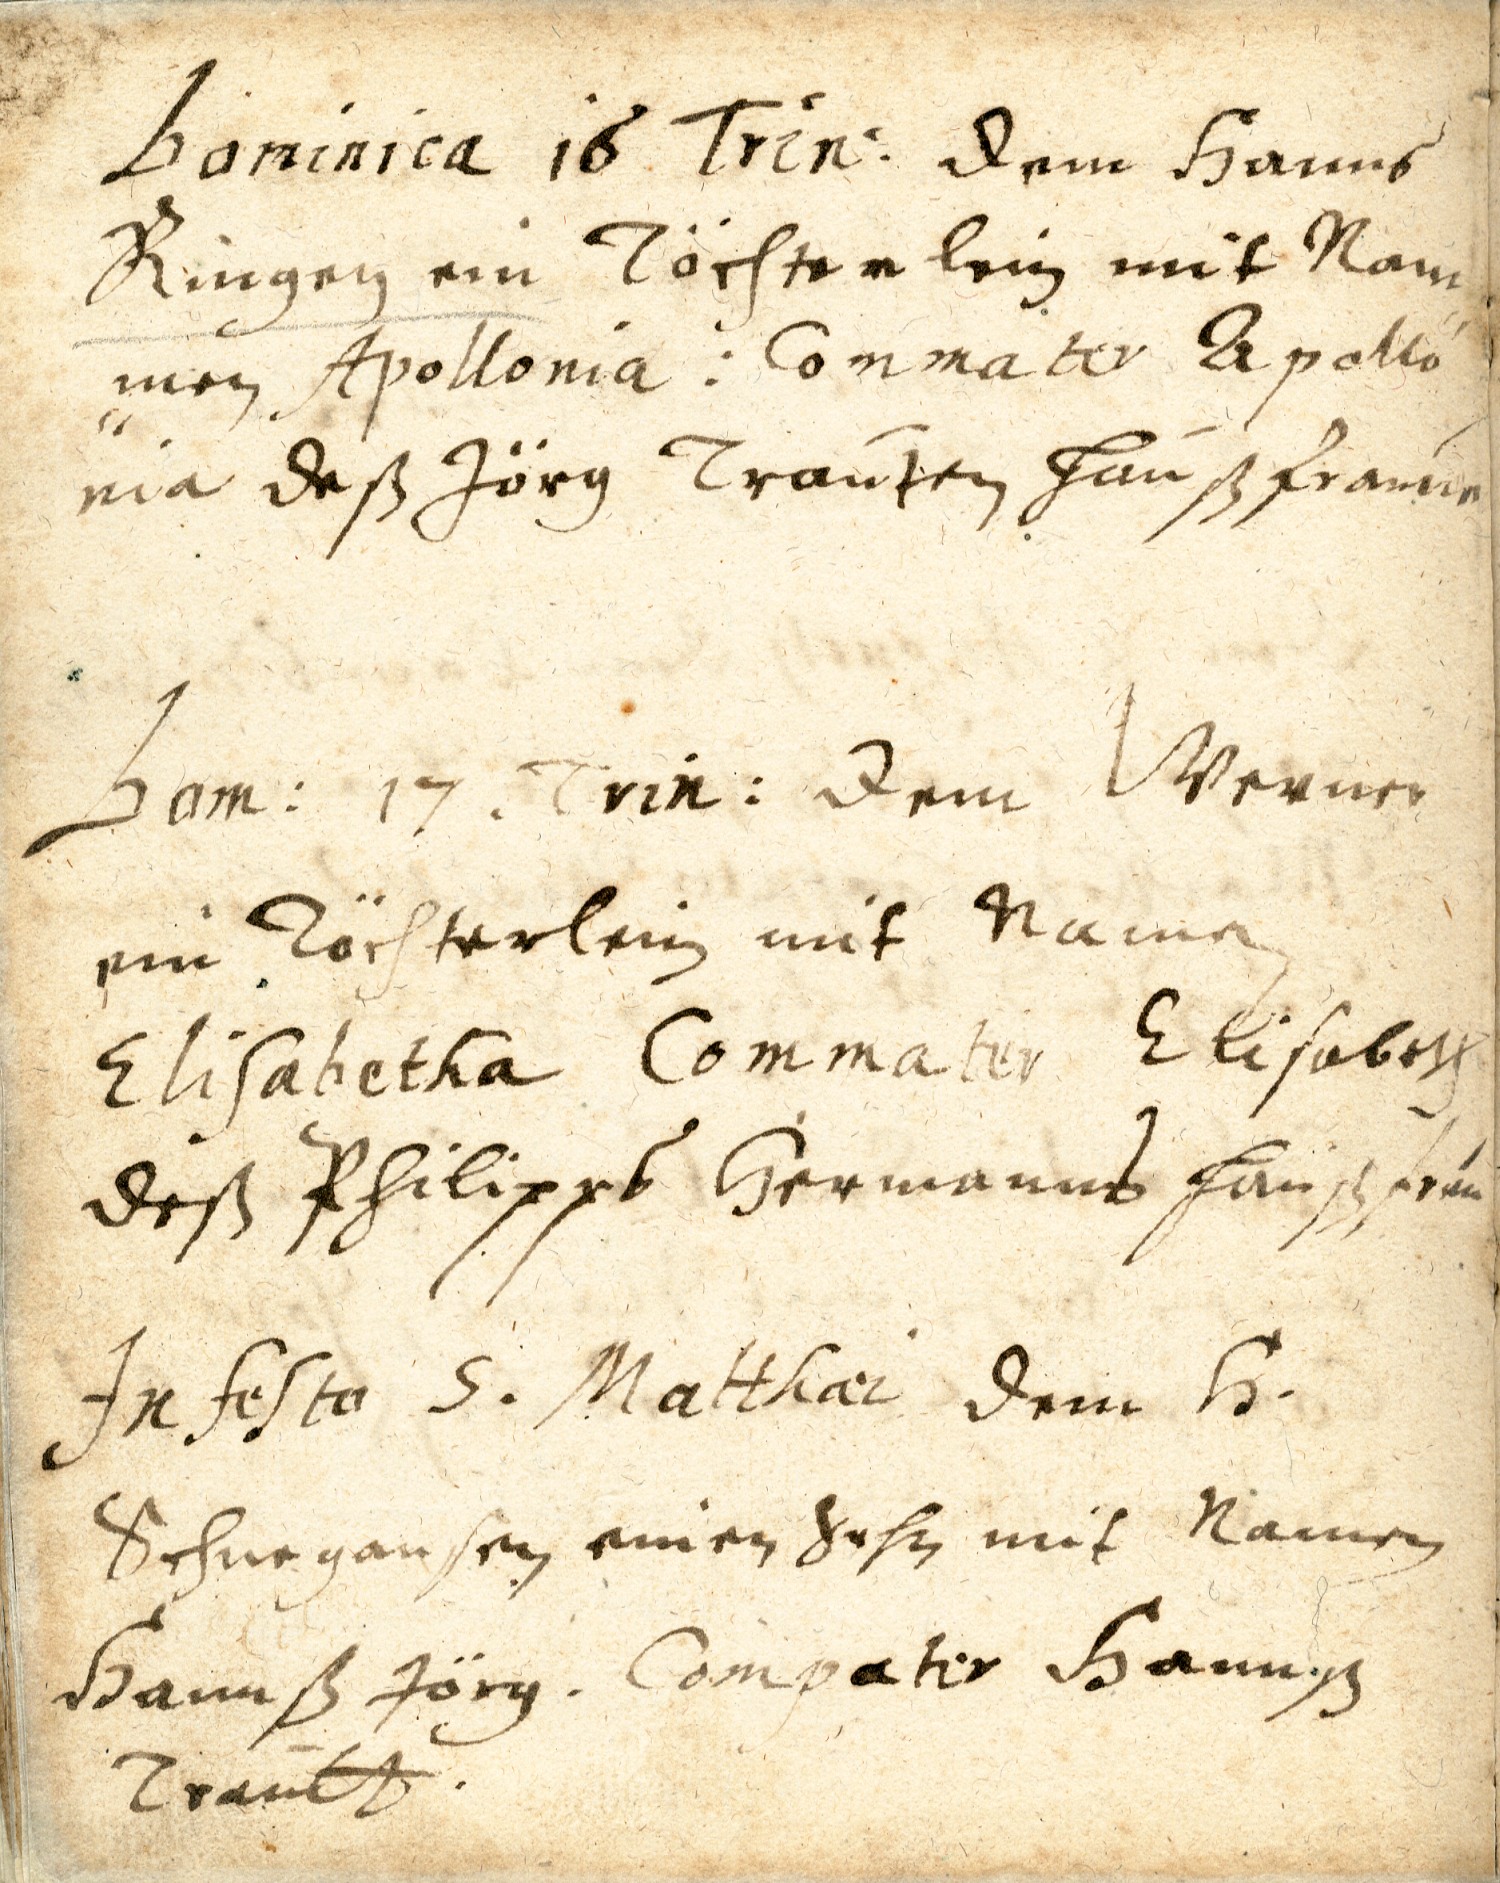 Dominica 16 Trin: dem Hanns
Ringen ein Töchterlein mit Nam
men Apollonia: Commater Apollo
nia deß Jörg Trauten Haußfrauw
Dom: 17. Trin: dem Werner
ein Töchterlein mit Namen
Elisabetha Commater Elisabeth
deß Philipps Hermanns Haußfrau
In festo S. Matthæi dem H.
Schnegansen einen Sohn mit Namen
Hannß Jörg. Compater Hannß
Trautt.